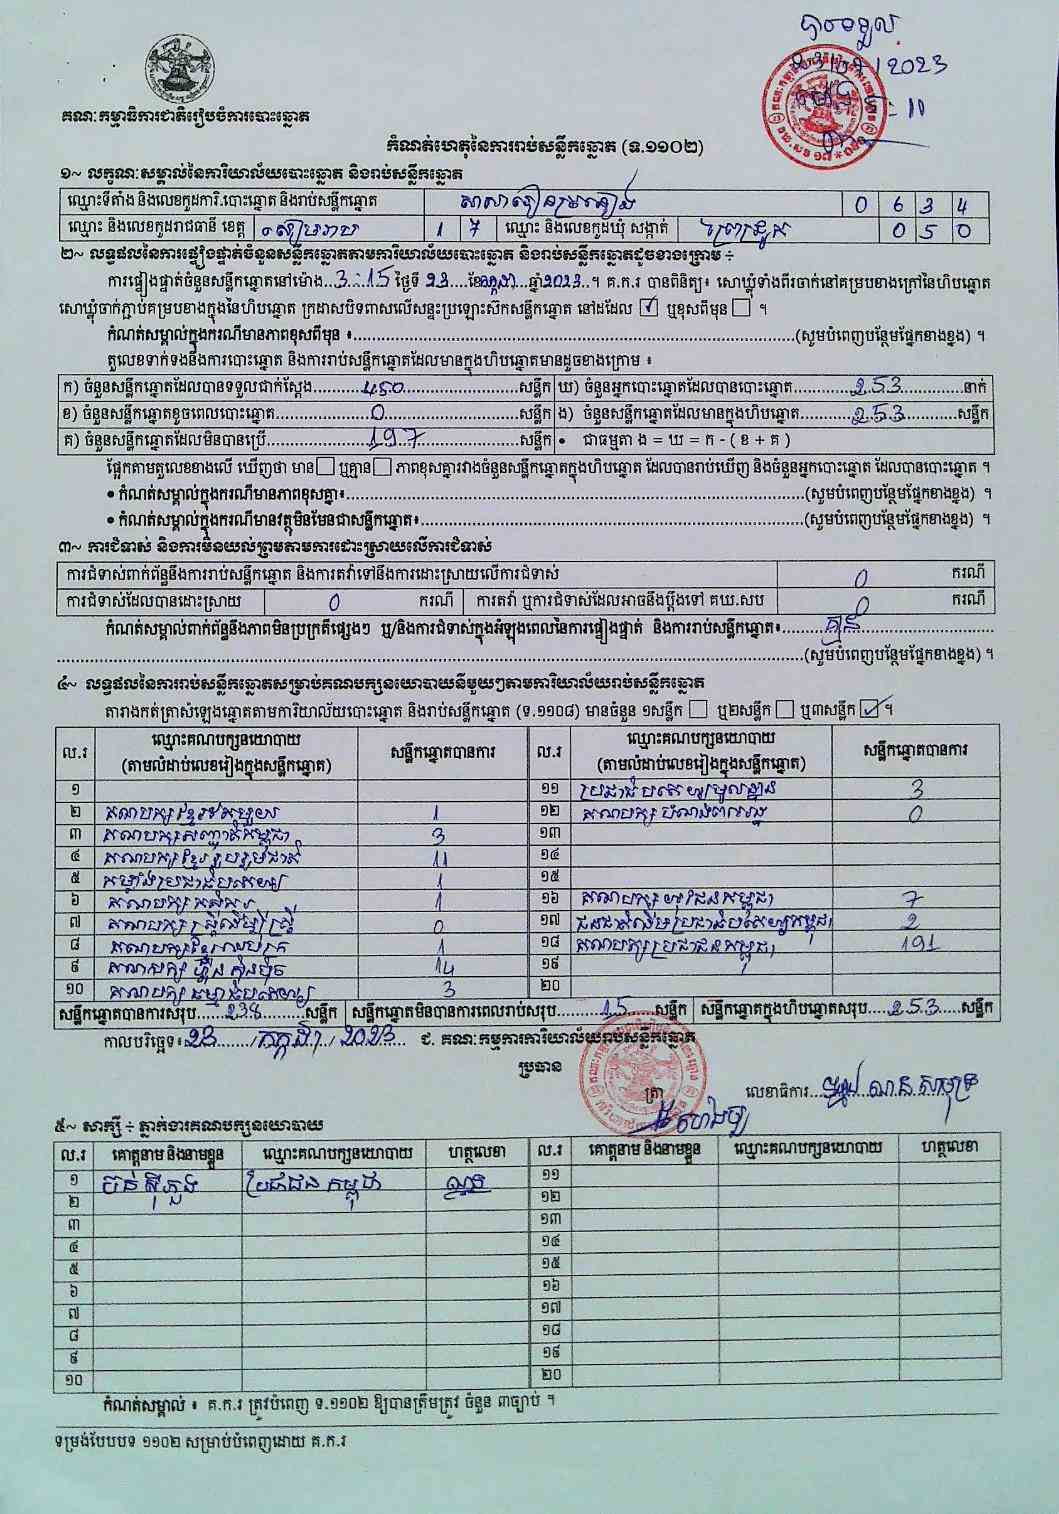 បានទទួល
2023
គណៈកម្មាធិការជាតិរៀបចំការបោះឆ្នោត
កំណត់ហេតុនៃការរាប់សន្លឹកឆ្នោត (ទ.១១០២)
១~ លក្ខណៈសម្គាល់នៃការិយាល័យបោះឆ្នោត និងរាប់សន្លឹកឆ្នោត
ឈ្មោះទីតាំង និងលេខកូដការិ.បោះឆ្នោត និងរាប់សន្លឹកឆ្នោត 0 6 3 4
ឈ្មោះ និងលេខកូដរាជធានី ខេត្ត សៀមរាប 1 7 ឈ្មោះ និងលេខកូដឃុំ សង្កាត់ 0 5 0
២~ លទ្ធផលនៃការផ្ទៀងផ្ទាត់ចំនួនសន្លឹកឆ្នោតតាមការិយាល័យបោះឆ្នោត និងរាប់សន្លឹកឆ្នោតដូចខាងក្រោម ÷
ការផ្ទៀងផ្ទាត់ចំនួនសន្លឹកឆ្នោតនៅម៉ោង...3:15 ថ្ងៃទី 23 ខែកក្កដា ឆ្នាំ2023 ។ គ.ក.រ បានពិនិត្យ៖ សោឃ្លុំទាំងពីរចាក់នៅគម្របខាងក្រៅនៃហិបឆ្នោត
សោឃ្លុំចាក់ភ្ជាប់គម្របខាងក្នុងនៃហិបឆ្នោត ក្រដាសបិទពាសលើសន្ទះប្រឡោះស៊កសន្លឹកឆ្នោត នៅដដែល ☑ ឬខុសពីមុន ☐ ។
កំណត់សម្គាល់ក្នុងករណីមានភាពខុសពីមុន ៖......(សូមបំពេញបន្ថែមផ្នែកខាងខ្នង) ។
តួលេខទាក់ទងនឹងការបោះឆ្នោត និងការរាប់សន្លឹកឆ្នោតដែលមានក្នុងហិបឆ្នោតមានដូចខាងក្រោម ៖
ក) ចំនួនសន្លឹកឆ្នោតដែលបានទទួលជាក់ស្តែង......450......សន្លឹក ឃ) ចំនួនអ្នកបោះឆ្នោតដែលបានបោះឆ្នោត......253......នាក់
ខ) ចំនួនសន្លឹកឆ្នោតខូចពេលបោះឆ្នោត......0......សន្លឹក ង) ចំនួនសន្លឹកឆ្នោតដែលមានក្នុងហិបឆ្នោត......253......សន្លឹក
គ) ចំនួនសន្លឹកឆ្នោតដែលមិនបានប្រើ......197......សន្លឹក • ជាធម្មតា ង = ឃ = ក - ( ខ + គ )
ផ្អែកតាមតួលេខខាងលើ ឃើញថា មាន ☐ ឬគ្មាន ☐ ភាពខុសគ្នារវាងចំនួនសន្លឹកឆ្នោតក្នុងហិបឆ្នោត ដែលបានរាប់ឃើញ និងចំនួនអ្នកបោះឆ្នោត ដែលបានបោះឆ្នោត ។
• កំណត់សម្គាល់ក្នុងករណីមានភាពខុសគ្នា៖......(សូមបំពេញបន្ថែមផ្នែកខាងខ្នង) ។
• កំណត់សម្គាល់ក្នុងករណីមានវត្ថុមិនមែនជាសន្លឹកឆ្នោត៖......(សូមបំពេញបន្ថែមផ្នែកខាងខ្នង) ។
៣~ ការជំទាស់ និងការមិនយល់ព្រមតាមការដោះស្រាយលើការជំទាស់
ការជំទាស់ពាក់ព័ន្ធនឹងការរាប់សន្លឹកឆ្នោត និងការតវ៉ាទៅនឹងការដោះស្រាយលើការជំទាស់ 0 ករណី
ការជំទាស់ដែលបានដោះស្រាយ 0 ករណី ការតវ៉ា ឬការជំទាស់ដែលអាចនឹងប្តឹងទៅ គឃ.សប 0 ករណី
កំណត់សម្គាល់ពាក់ព័ន្ធនឹងភាពមិនប្រក្រតីផ្សេងៗ ឬ/និងការជំទាស់ក្នុងអំឡុងពេលនៃការផ្ទៀងផ្ទាត់ និងការរាប់សន្លឹកឆ្នោត៖......គ្មាន......
......(សូមបំពេញបន្ថែមផ្នែកខាងខ្នង) ។
៤~ លទ្ធផលនៃការរាប់សន្លឹកឆ្នោតសម្រាប់គណបក្សនយោបាយនីមួយៗតាមការិយាល័យរាប់សន្លឹកឆ្នោត
តារាងកត់ត្រាសំឡេងឆ្នោតតាមការិយាល័យបោះឆ្នោត និងរាប់សន្លឹកឆ្នោត (ទ.១១០៨) មានចំនួន ១សន្លឹក ☐ ឬ២សន្លឹក ☐ ឬ៣សន្លឹក ☑ ។
ល.រ ឈ្មោះគណបក្សនយោបាយ (តាមលំដាប់លេខរៀងក្នុងសន្លឹកឆ្នោត) សន្លឹកឆ្នោតបានការ ល.រ ឈ្មោះគណបក្សនយោបាយ (តាមលំដាប់លេខរៀងក្នុងសន្លឹកឆ្នោត) សន្លឹកឆ្នោតបានការ
១ ១១ ប្រជាធិបតេយ្យមូលដ្ឋាន 3
២ គណបក្សខ្មែរតែមួយ 1 ១២ គណបក្ស បំណងពលរដ្ឋ 0
៣ គណបក្សសញ្ជាតិកម្ពុជា 3 ១៣
៤ គណបក្សខ្មែររួបរួមជាតិ 11 ១៤
៥ កម្លាំងប្រជាធិបតេយ្យ 1 ១៥
៦ គណបក្ស កសិករ 1 ១៦ គណបក្ស យុវជនកម្ពុជា 7
៧ គណបក្ស ស្ត្រីដើម្បីស្ត្រី 0 ១៧ ជនជាតិដើមប្រជាធិបតេយ្យកម្ពុជា 2
៨ គណបក្សខ្មែរអភិរក្ស 1 ១៨ គណបក្សប្រជាជនកម្ពុជា 191
៩ គណបក្ស ហ៊្វុនស៊ិនប៉ិច 14 ១៩
១០ គណបក្ស ធម្មាធិបតេយ្យ 3 ២០
សន្លឹកឆ្នោតបានការសរុប......238......សន្លឹក សន្លឹកឆ្នោតមិនបានការពេលរាប់សរុប......15......សន្លឹក សន្លឹកឆ្នោតក្នុងហិបឆ្នោតសរុប......253......សន្លឹក
កាលបរិច្ឆេទ៖ 23 / កក្កដា / 2023 ជ. គណៈកម្មការការិយាល័យរាប់សន្លឹកឆ្នោត
ប្រធាន
ត្រា លេខាធិការ
៥~ សាក្សី ÷ ភ្នាក់ងារគណបក្សនយោបាយ
ល.រ គោត្តនាម និងនាមខ្លួន ឈ្មោះគណបក្សនយោបាយ ហត្ថលេខា ល.រ គោត្តនាម និងនាមខ្លួន ឈ្មោះគណបក្សនយោបាយ ហត្ថលេខា
១ ប្រជាជន កម្ពុជា ១១
២ ១២
៣ ១៣
៤ ១៤
៥ ១៥
៦ ១៦
៧ ១៧
៨ ១៨
៩ ១៩
១០ ២០
កំណត់សម្គាល់ ៖ គ.ក.រ ត្រូវបំពេញ ទ.១១០២ ឱ្យបានត្រឹមត្រូវ ចំនួន ៣ច្បាប់ ។
ទម្រង់បែបបទ ១១០២ សម្រាប់បំពេញដោយ គ.ក.រ